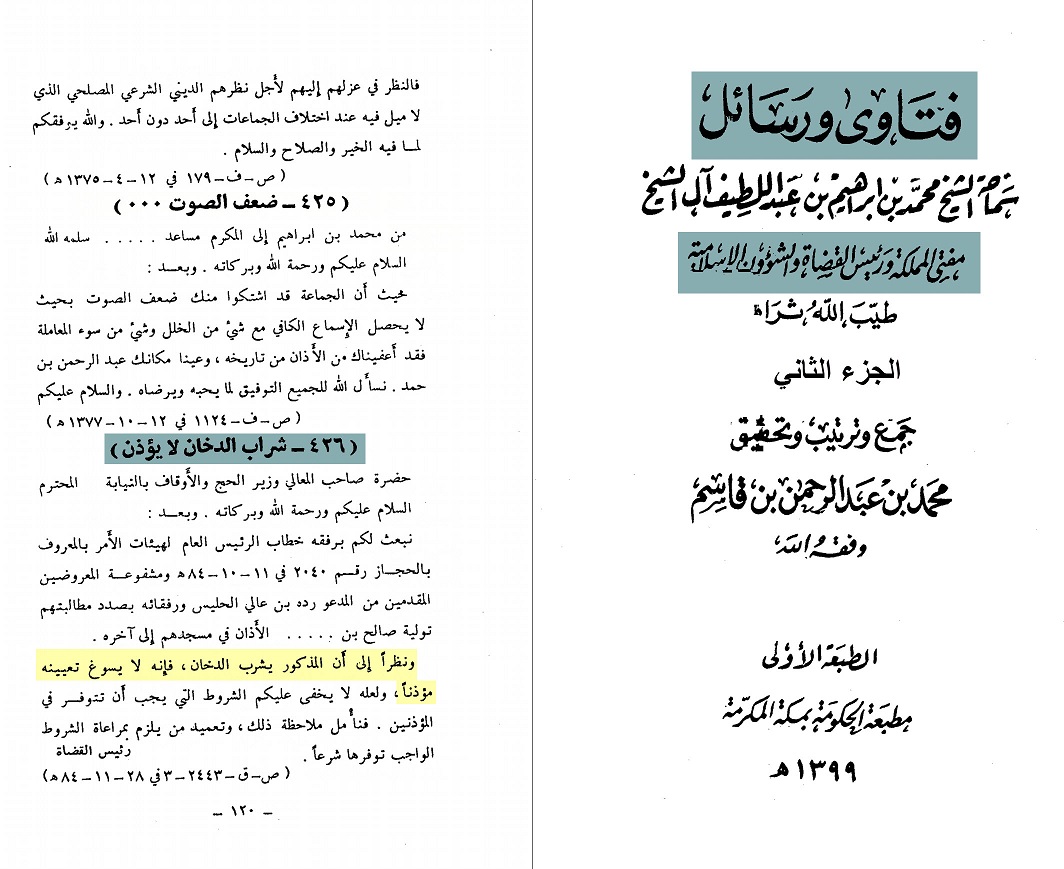 فتاوى ورسائل
سماحة الشيخ محمد بن ابراهيم بن عبد اللطيف آل الشيخ
مفتي المملكة ورئيس القضاة والشؤون الإسلامية
طيّب الله ثراه
الجزء الثاني
جمع وترتيب وتحقيق
محمد بن عبد الرحمن بن قاسم
وفقه الله
الطبعة الأولى
مطبعة الحكومة بمكة المكرمة
١٣٩٩ هـ
فالنظر في عزلهم إليهم لأجل نظرهم الديني الشرعي المصلحي الذي
لا ميل فيه عند اختلاف الجماعات إلى أحد دون أحد . والله يوفقكم
لما فيه الخير والصلاح والسلام .
( ص-ف-١٧٩ في ١٢-٤-١٣٧٥ هـ )
( ٤٢٥ ـ ضعف الصوت ٠٠٠ )
من محمد بن ابراهيم إلى المكرم مساعد . . . . . سلمه الله
السلام عليكم ورحمة الله وبركاته . وبعد :
فحيث أن الجماعة قد اشتكوا منك ضعف الصوت بحيث
لا يحصل الإسماع الكافي مع شيء من الخلل وشيء من سوء المعاملة
فقد أعفيناك من الأذان من تاريخه ، وعينا مكانك عبد الرحمن بن
حمد . نسأل الله للجميع التوفيق لما يحبه ويرضاه . والسلام عليكم
( ص-ف-١١٢٤ في ١٢-١٠-١٣٧٧ هـ )
( ٤٢٦ ـ شراب الدخان لا يؤذن )
حضرة صاحب المعالي وزير الحج والأوقاف بالنيابة المحترم
السلام عليكم ورحمة الله وبركاته . وبعد :
نبعث لكم برفقه خطاب الرئيس العام لهيئات الأمر بالمعروف
بالحجاز رقم ٢٠٤٠ في ١١-١٠-٨٤ هـ ومشفوعة المعروضين
المقدمين من المدعو رده بن عالي الحليس ورفقائه بصدد مطالبتهم
تولية صالح بن . . . . . الأذان في مسجدهم إلى آخره .
ونظراً إلى أن المذكور يشرب الدخان ، فإنه لا يسوغ تعيينه
مؤذناً ، ولعله لا يخفى عليكم الشروط التي يجب أن تتوفر في
المؤذنين . فنأمل ملاحظة ذلك ، وتعميد من يلزم بمراعاة الشروط
الواجب توفرها شرعاً . رئيس القضاة
( ص-ق-٢٤٤٣-٣ في ٢٨-١١-٨٤ هـ )
ـ ١٢٠ ـ